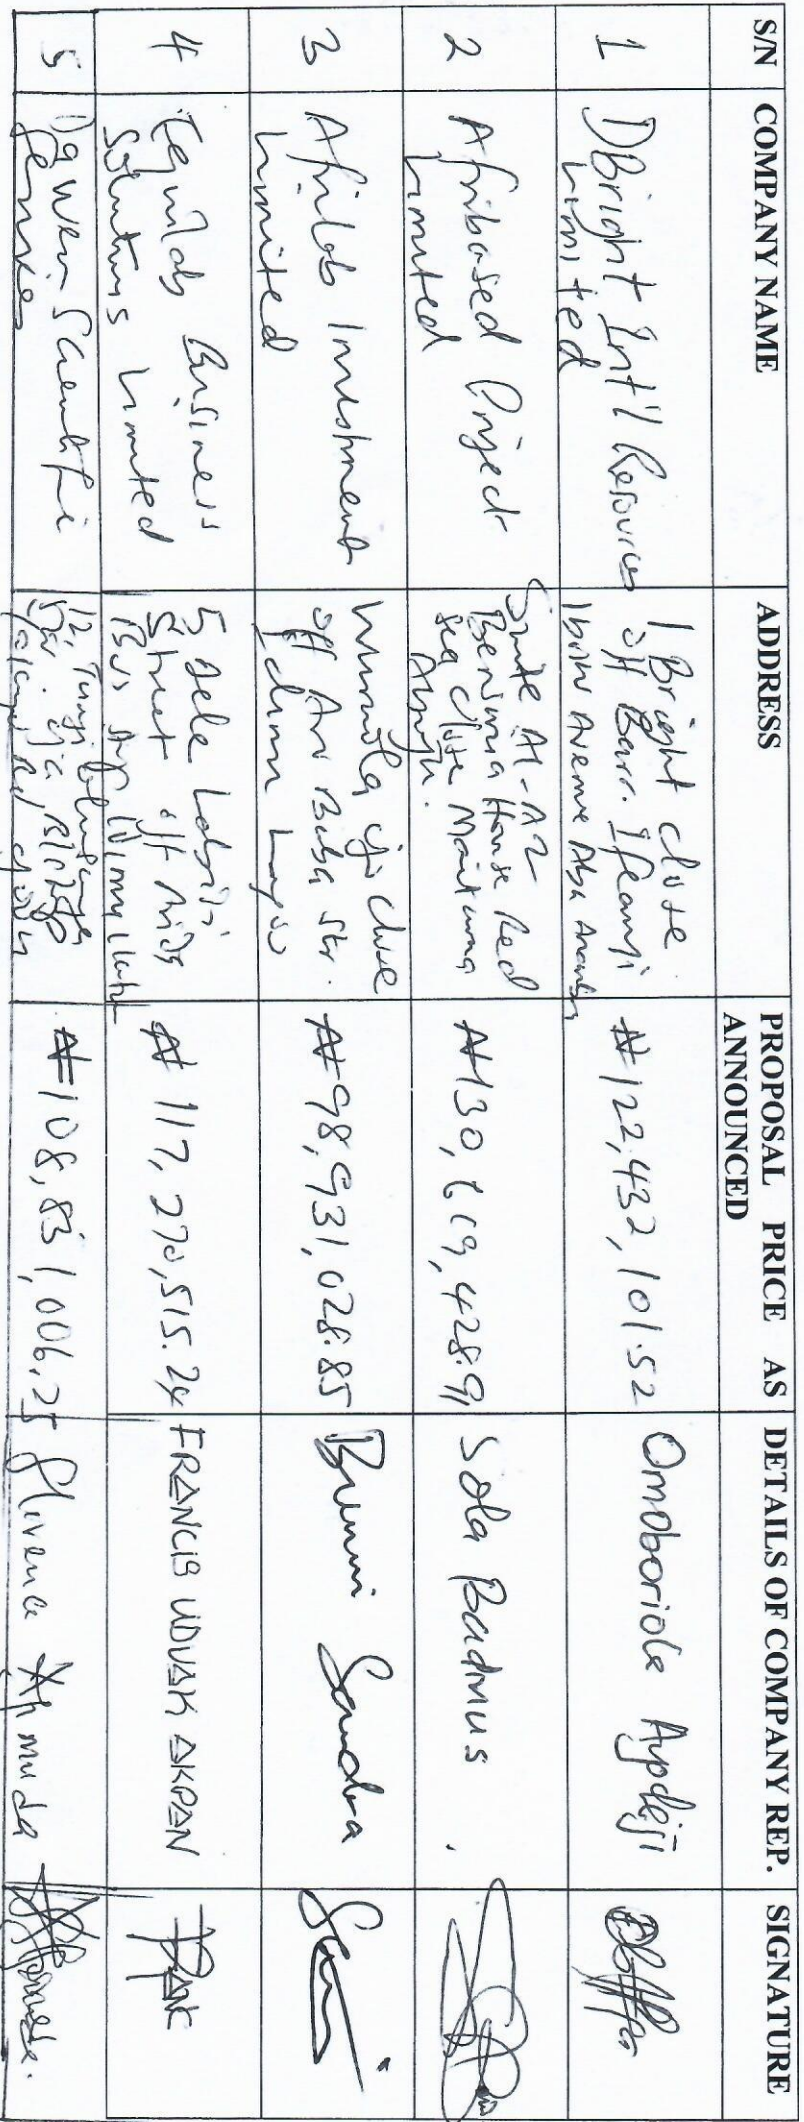 S/N COMPANY NAME ADDRESS PROPOSAL PRICE AS ANNOUNCED DETAILS OF COMPANY REP. SIGNATURE
1 DBright Int'l Resources Limited 1 Bright close off Barr. Ifeanyi Avenue Aba ₦122,432,101.52 Omoboriole Ayodeji
2 Afribased Project Limited Suite A1-A2 House Red Sea Close Maitama Abuja. ₦130,619,428.91 Sola Badmus
3 Afrilab Investment Limited close off Baba Str. ₦98,931,028.85 Bunmi Sandra
4 Equilab Business Solutions Limited 5 Dele Street off Bus Stop ₦117,270,515.24 FRANCIS UDUAK AKPAN
5 Scientific Services 12, ₦108,831,006.25